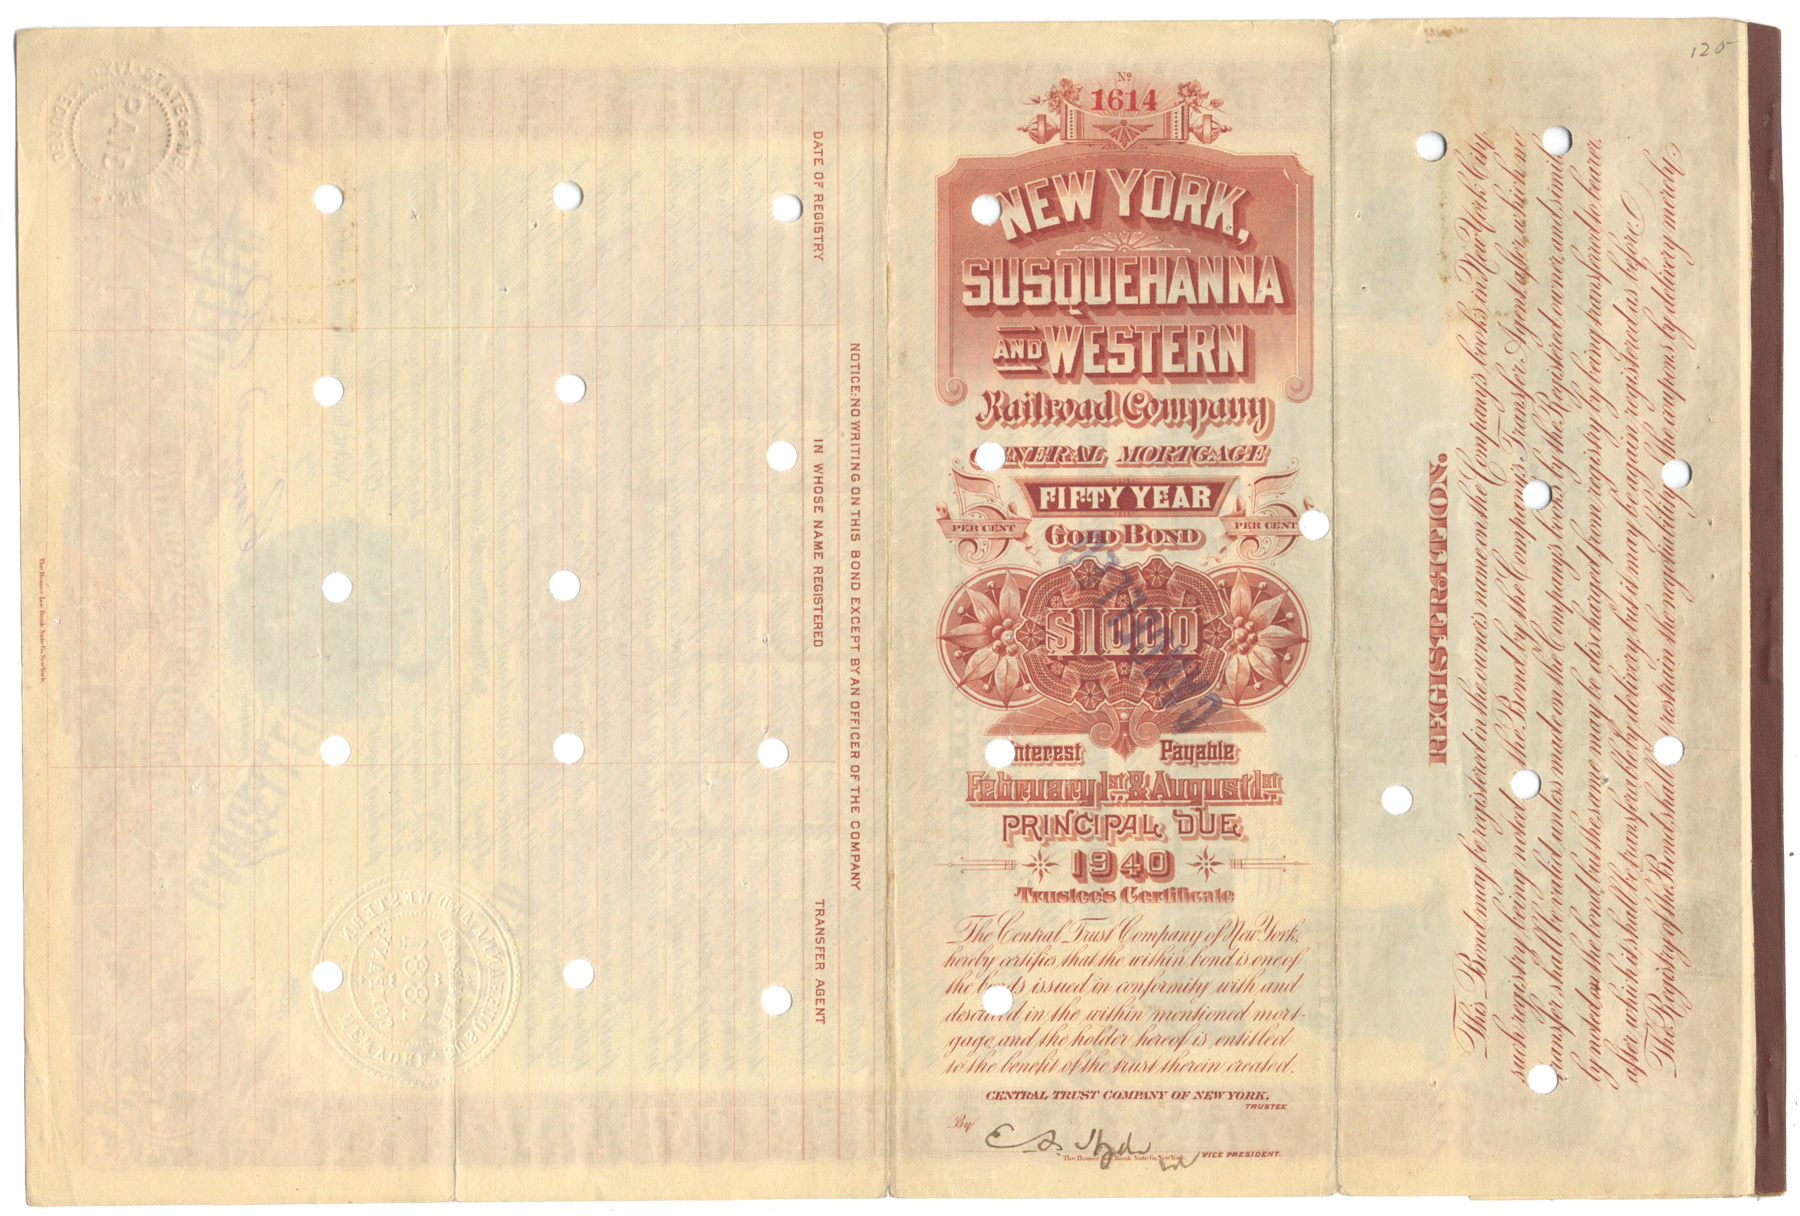 120
No
1614
NEW YORK,
SUSQUEHANNA
AND WESTERN
Railroad Company
GENERAL MORTGAGE
FIFTY YEAR
5 PER CENT
5 PER CENT
GOLD BOND
$1000
CANCELLED
Interest Payable
February 1st & August 1st
PRINCIPAL DUE
1940
Trustee's Certificate
The Central Trust Company of New York,
hereby certifies that the within bond is one of
the bonds issued in conformity with and
described in the within mentioned mort-
gage, and the holder hereof is entitled
to the benefit of the trust therein created.
CENTRAL TRUST COMPANY OF NEW YORK,
TRUSTEE
By
VICE PRESIDENT.
The Homer Lee Bank Note Co. New York.
REGISTRATION.
This Bond may be registered in the owner's name on the Company's books in New York City,
such registry being noted on the Bond by the Company's Transfer Agent, after which no
transfer shall be valid unless made on the Company's books by the Registered owner, and simil-
ly noted on the bond, but the same may be discharged from registry by being transferred to bearer,
after which it shall be transferable by delivery, but it may be again registered as before.
The Registry of the Bond shall not restrain the negotiability of the coupons by delivery merely.
NOTICE: NO WRITING ON THIS BOND EXCEPT BY AN OFFICER OF THE COMPANY
DATE OF REGISTRY
IN WHOSE NAME REGISTERED
TRANSFER AGENT
The Homer Lee Bank Note Co. New York.
PAID
1881